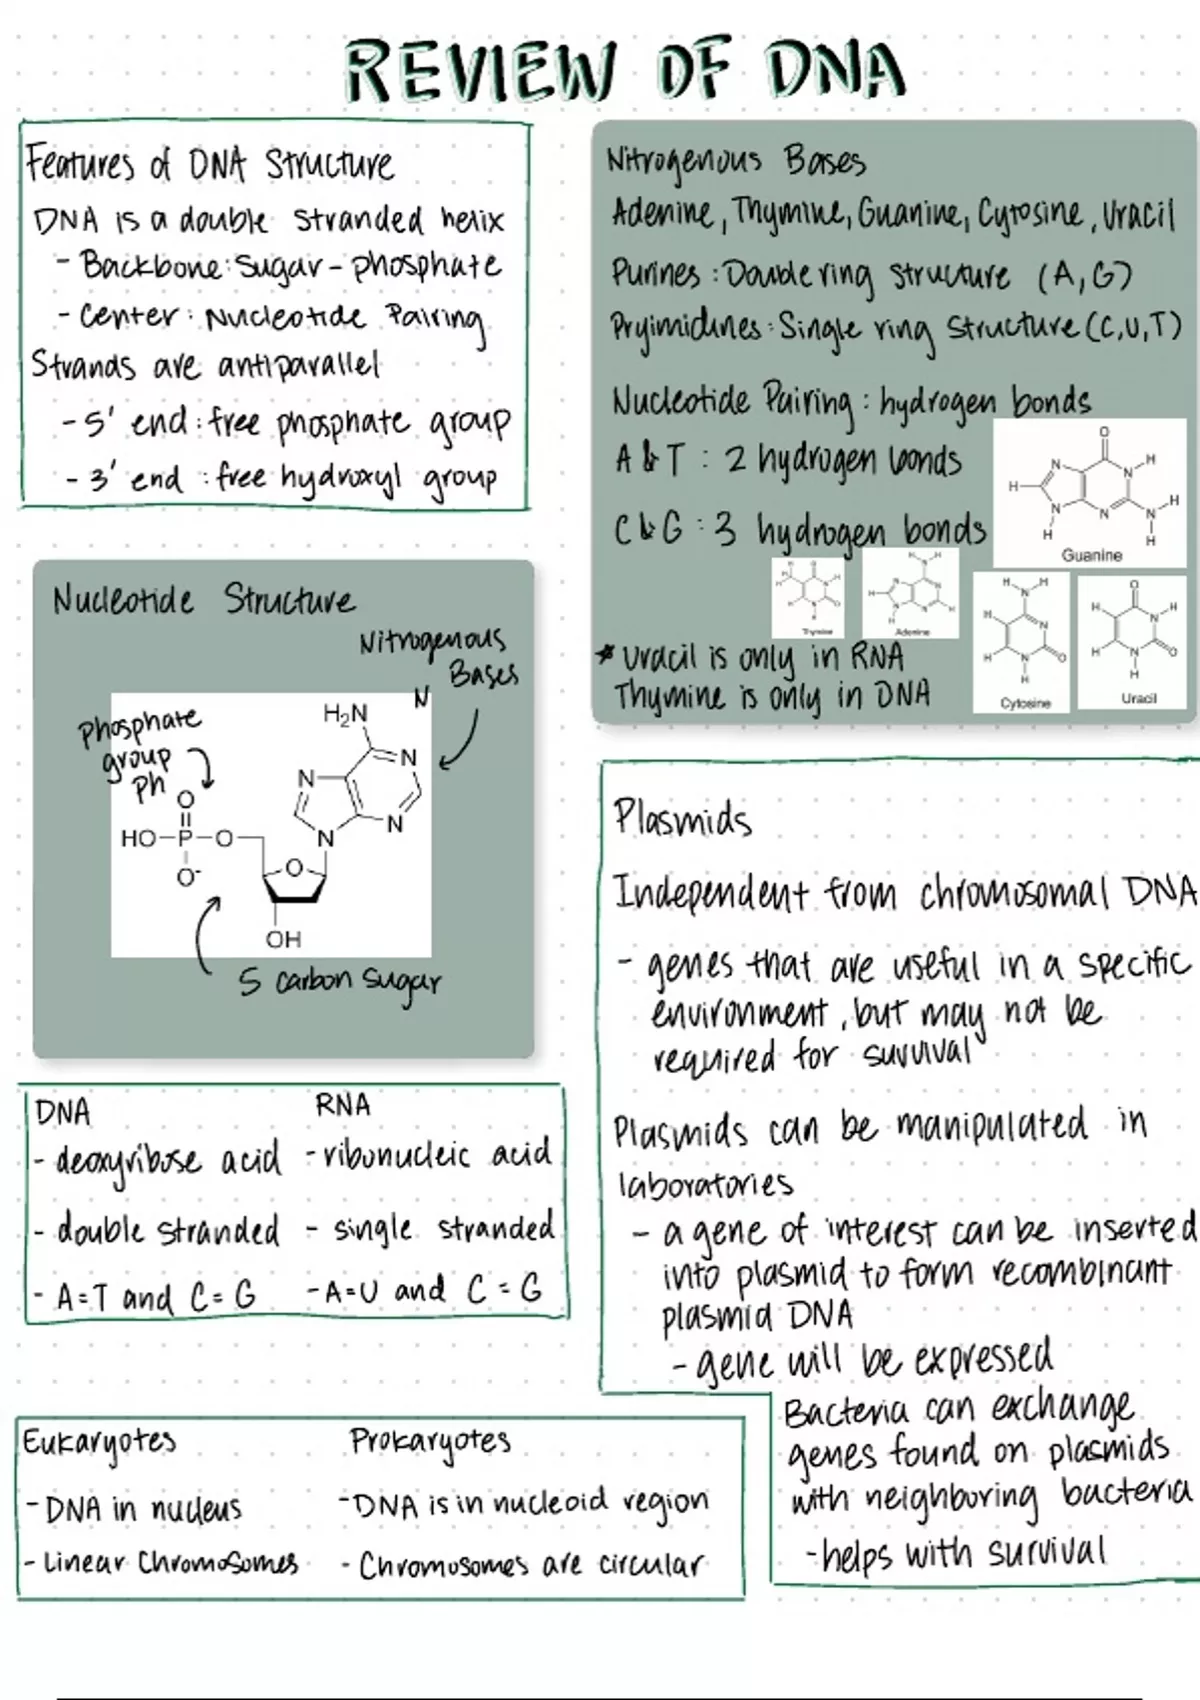 REVIEW OF DNA
Features of DNA Structure
DNA is a double stranded helix
- Backbone: Sugar-phosphate
- Center: Nucleotide Pairing
Strands are antiparallel
- 5' end: free phosphate group
- 3' end : free hydroxyl group
Nitrogenous Bases
Adenine, Thymine, Guanine, Cytosine, Uracil
Purines : Double ring structure (A,G)
Pryimidines: Single ring structure (C,U,T)
Nucleotide Pairing : hydrogen bonds
A & T : 2 hydrogen bonds
C & G : 3 hydrogen bonds
O
N
N
H
H
N
H
N
N
H
H
Guanine
Thymine
Adenine
H
H
N
H
N
H
N
O
H
Cytosine
O
H
N
H
H
N
O
H
Uracil
* Uracil is only in RNA
Thymine is only in DNA
Nucleotide Structure
Nitrogenous
Bases
N
Phosphate
group
Ph
H₂N
N
N
N
N
O
HO-P-O
O⁻
O
OH
5 carbon sugar
Plasmids
Independent from chromosomal DNA
- genes that are useful in a specific
environment, but may not be
required for survival
Plasmids can be manipulated in
laboratories
- a gene of interest can be inserted
into plasmid to form recombinant
plasmid DNA
- gene will be expressed
Bacteria can exchange
genes found on plasmids
with neighboring bacteria
- helps with survival
DNA
- deoxyribose acid
- double stranded
- A=T and C=G
RNA
- ribonucleic acid
- single stranded
- A=U and C=G
Eukaryotes
- DNA in nucleus
- Linear Chromosomes
Prokaryotes
- DNA is in nucleoid region
- Chromosomes are circular